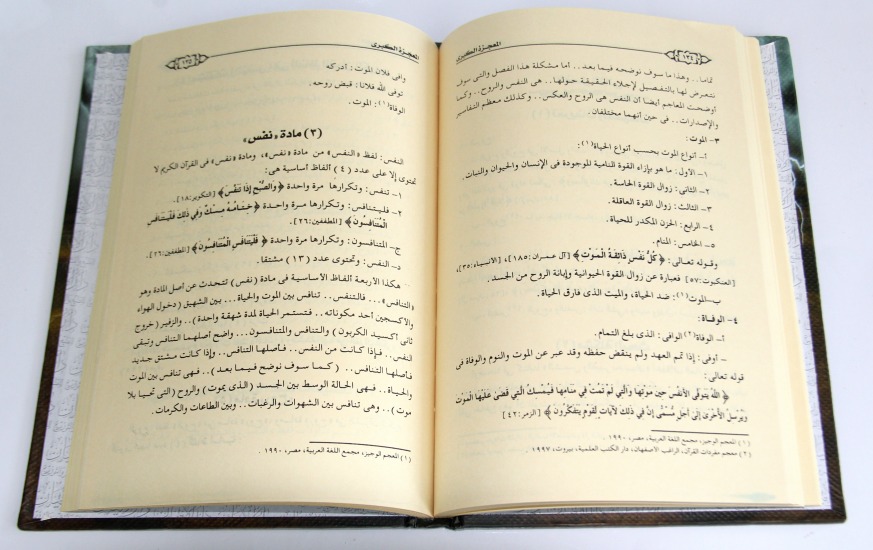 المعجزة الكبرى
١٣٤
تماما.. وهذا ما سوف نوضحه فيما بعد.. أما مشكلة هذا الفصل والتى سوف
نتعرض لها بالتفصيل لإجلاء الحقيقة حولها.. هى النفس والروح.. وكما
أوضحت المعاجم أيضا أن النفس هى الروح والعكس.. وكذلك معظم التفاسير
والإصدارات.. فى حين أنهما مختلفان.
٣- الموت:
أ- أنواع الموت بحسب أنواع الحياة(١):
١- الأول: ما هو بإزاء القوة النامية الموجودة فى الإنسان والحيوان والنبات.
٢- الثانى: زوال القوة الحاسة.
٣- الثالث: زوال القوة العاقلة.
٤- الرابع: الحزن المكدر للحياة.
٥- الخامس: المنام.
وقوله تعالى: ﴿كُلُّ نَفْسٍ ذَائِقَةُ الْمَوْتِ﴾ [آل عمران: ١٨٥]، [الأنبياء: ٣٥]،
[العنكبوت: ٥٧] فعبارة عن زوال القوة الحيوانية وإبانة الروح من الجسد.
ب- الموت(١): ضد الحياة، والميت الذى فارق الحياة.
٤- الوفاة:
أ- الوفاة(٢) الوافى: الذى بلغ التمام.
- أوفى: إذا تمم العهد ولم ينقض حفظه وقد عبر عن الموت والنوم والوفاة فى
قوله تعالى:
﴿اللَّهُ يَتَوَفَّى الْأَنفُسَ حِينَ مَوْتِهَا وَالَّتِي لَمْ تَمُتْ فِي مَنَامِهَا فَيُمْسِكُ الَّتِي قَضَىٰ عَلَيْهَا الْمَوْتَ
وَيُرْسِلُ الْأُخْرَىٰ إِلَىٰ أَجَلٍ مُّسَمًّى إِنَّ فِي ذَٰلِكَ لَآيَاتٍ لِّقَوْمٍ يَتَفَكَّرُونَ﴾ [الزمر: ٤٢]
(١) المعجم الوجيز، مجمع اللغة العربية، مصر، ١٩٩٠.
(٢) معجم مفردات القرآن، الراغب الأصفهان، دار الكتب العلمية، بيروت، ١٩٩٧.
المعجزة الكبرى
١٣٥
وافى فلان الموت: أدركه
توفى الله فلانا: قبض روحه.
الوفاة(١): الموت.
(٣) مادة «نفس»
النفس: لفظ «النفس» من مادة «نفس»، ومادة «نفس» فى القرآن الكريم لا
تحتوى إلا على عدد (٤) ألفاظ أساسية هى:
١- تنفس: وتكرارها مرة واحدة ﴿وَالصُّبْحِ إِذَا تَنَفَّسَ﴾ [التكوير: ١٨].
٢- فليتنافس: وتكرارها مرة واحدة ﴿خِتَامُهُ مِسْكٌ وَفِي ذَلِكَ فَلْيَتَنَافَسِ
الْمُتَنَافِسُونَ﴾ [المطففين: ٢٦].
ج- المتنافسون: وتكرارها مرة واحدة ﴿فَلْيَتَنَافَسِ الْمُتَنَافِسُونَ﴾ [المطففين: ٢٦].
د- النفس: وتحتوى عدد (١٣) مشتقا.
هكذا الأربعة ألفاظ الأساسية فى مادة (نفس) تتحدث عن أصل المادة وهو
«التنافس»... فالتنفس.. تنافس بين الموت والحياة... بين الشهيق (دخول الهواء
والأكسجين أحد مكوناته.. فتستمر الحياة لمدة شهقة واحدة).. والزفير (خروج
ثانى أكسيد الكربون) والتنافس والمتنافسون... واضح أصلهما التنافس وتبقى
النفس.. فإذا كانت من النفس.. فأصلها التنافس.. وإذا كانت مشتق جديد
فأصلها التنافس.. (كما سوف نوضح فيما بعد).. فهى تنافس بين الموت
والحياة.. فهى الحالة الوسط بين الجسد (الذى يموت) والروح (التى تحيا بلا
موت).. وهى تنافس بين الشهوات والرغبات.. وبين الطاعات والكرمات.
(١) المعجم الوجيز، مجمع اللغة العربية، مصر، ١٩٩٠.